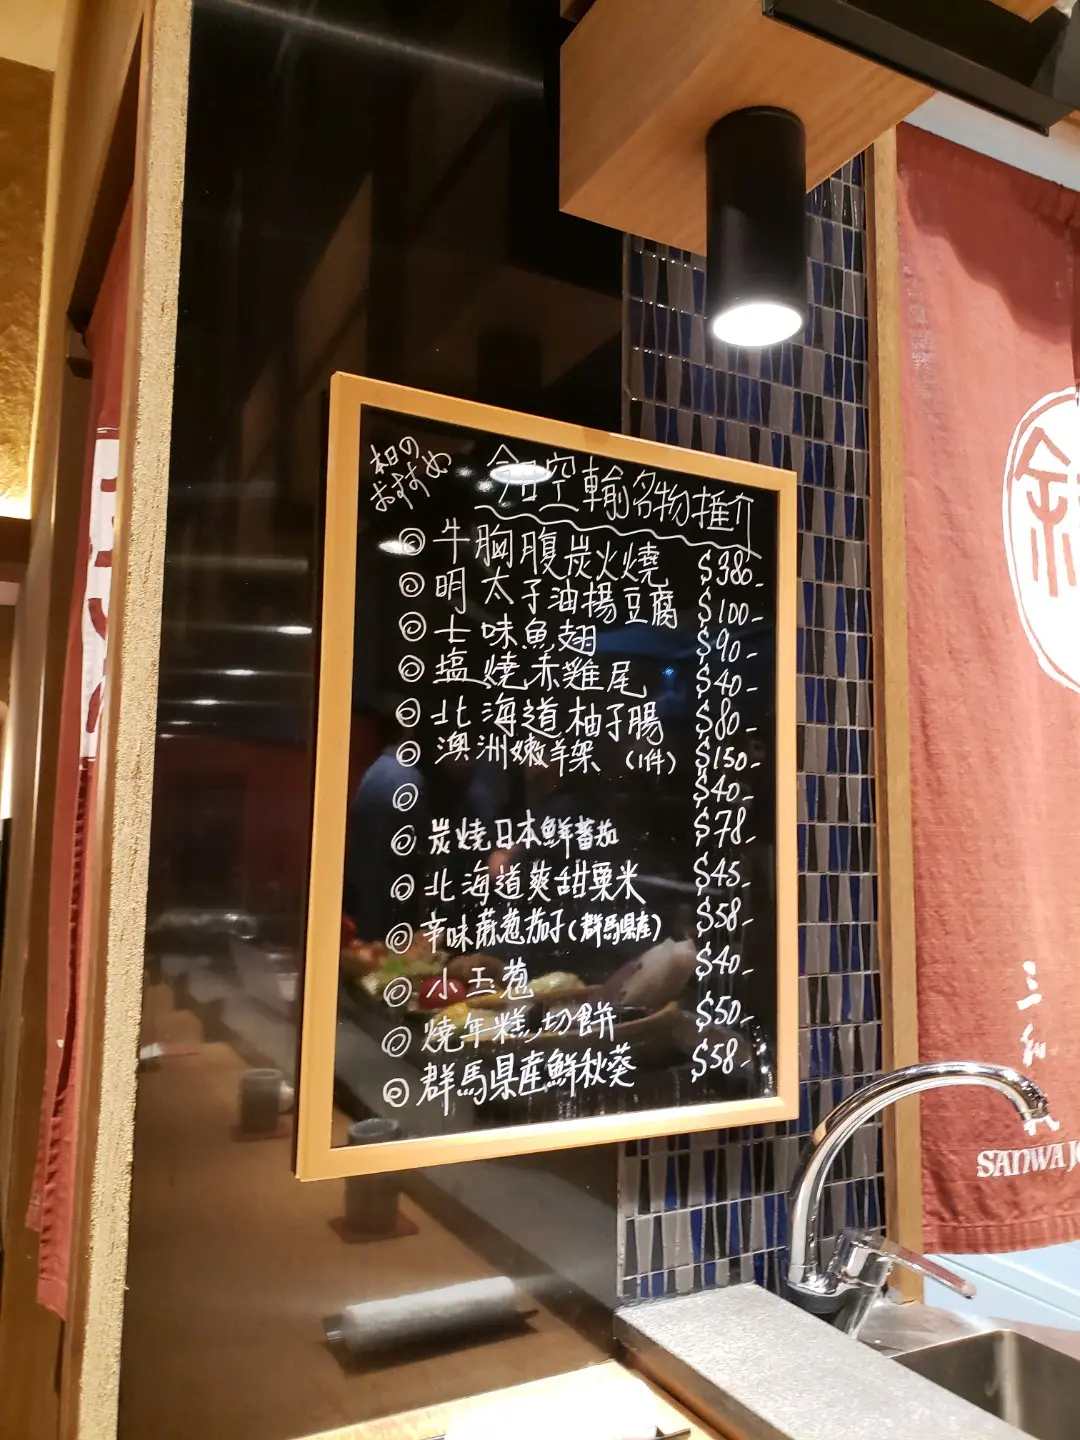 本日の
おすすめ
今日空輸名物推介
◎ 牛胸腹炭火燒 $380-
◎ 明太子油揚豆腐 $100-
◎ 七味魚翅 $90-
◎ 塩燒赤雞尾 $40-
◎ 北海道柚子腸 $80-
◎ 澳洲嫩羊架 (1件) $150-
◎ $40-
◎ 炭燒日本鮮蕃茄 $78-
◎ 北海道爽甜粟米 $45-
◎ 辛味蔴葱茄子(群馬県産) $58-
◎ 小玉葱 $40-
◎ 燒年糕切餅 $50-
◎ 群馬県産鮮秋葵 $58-
三和
SANWA